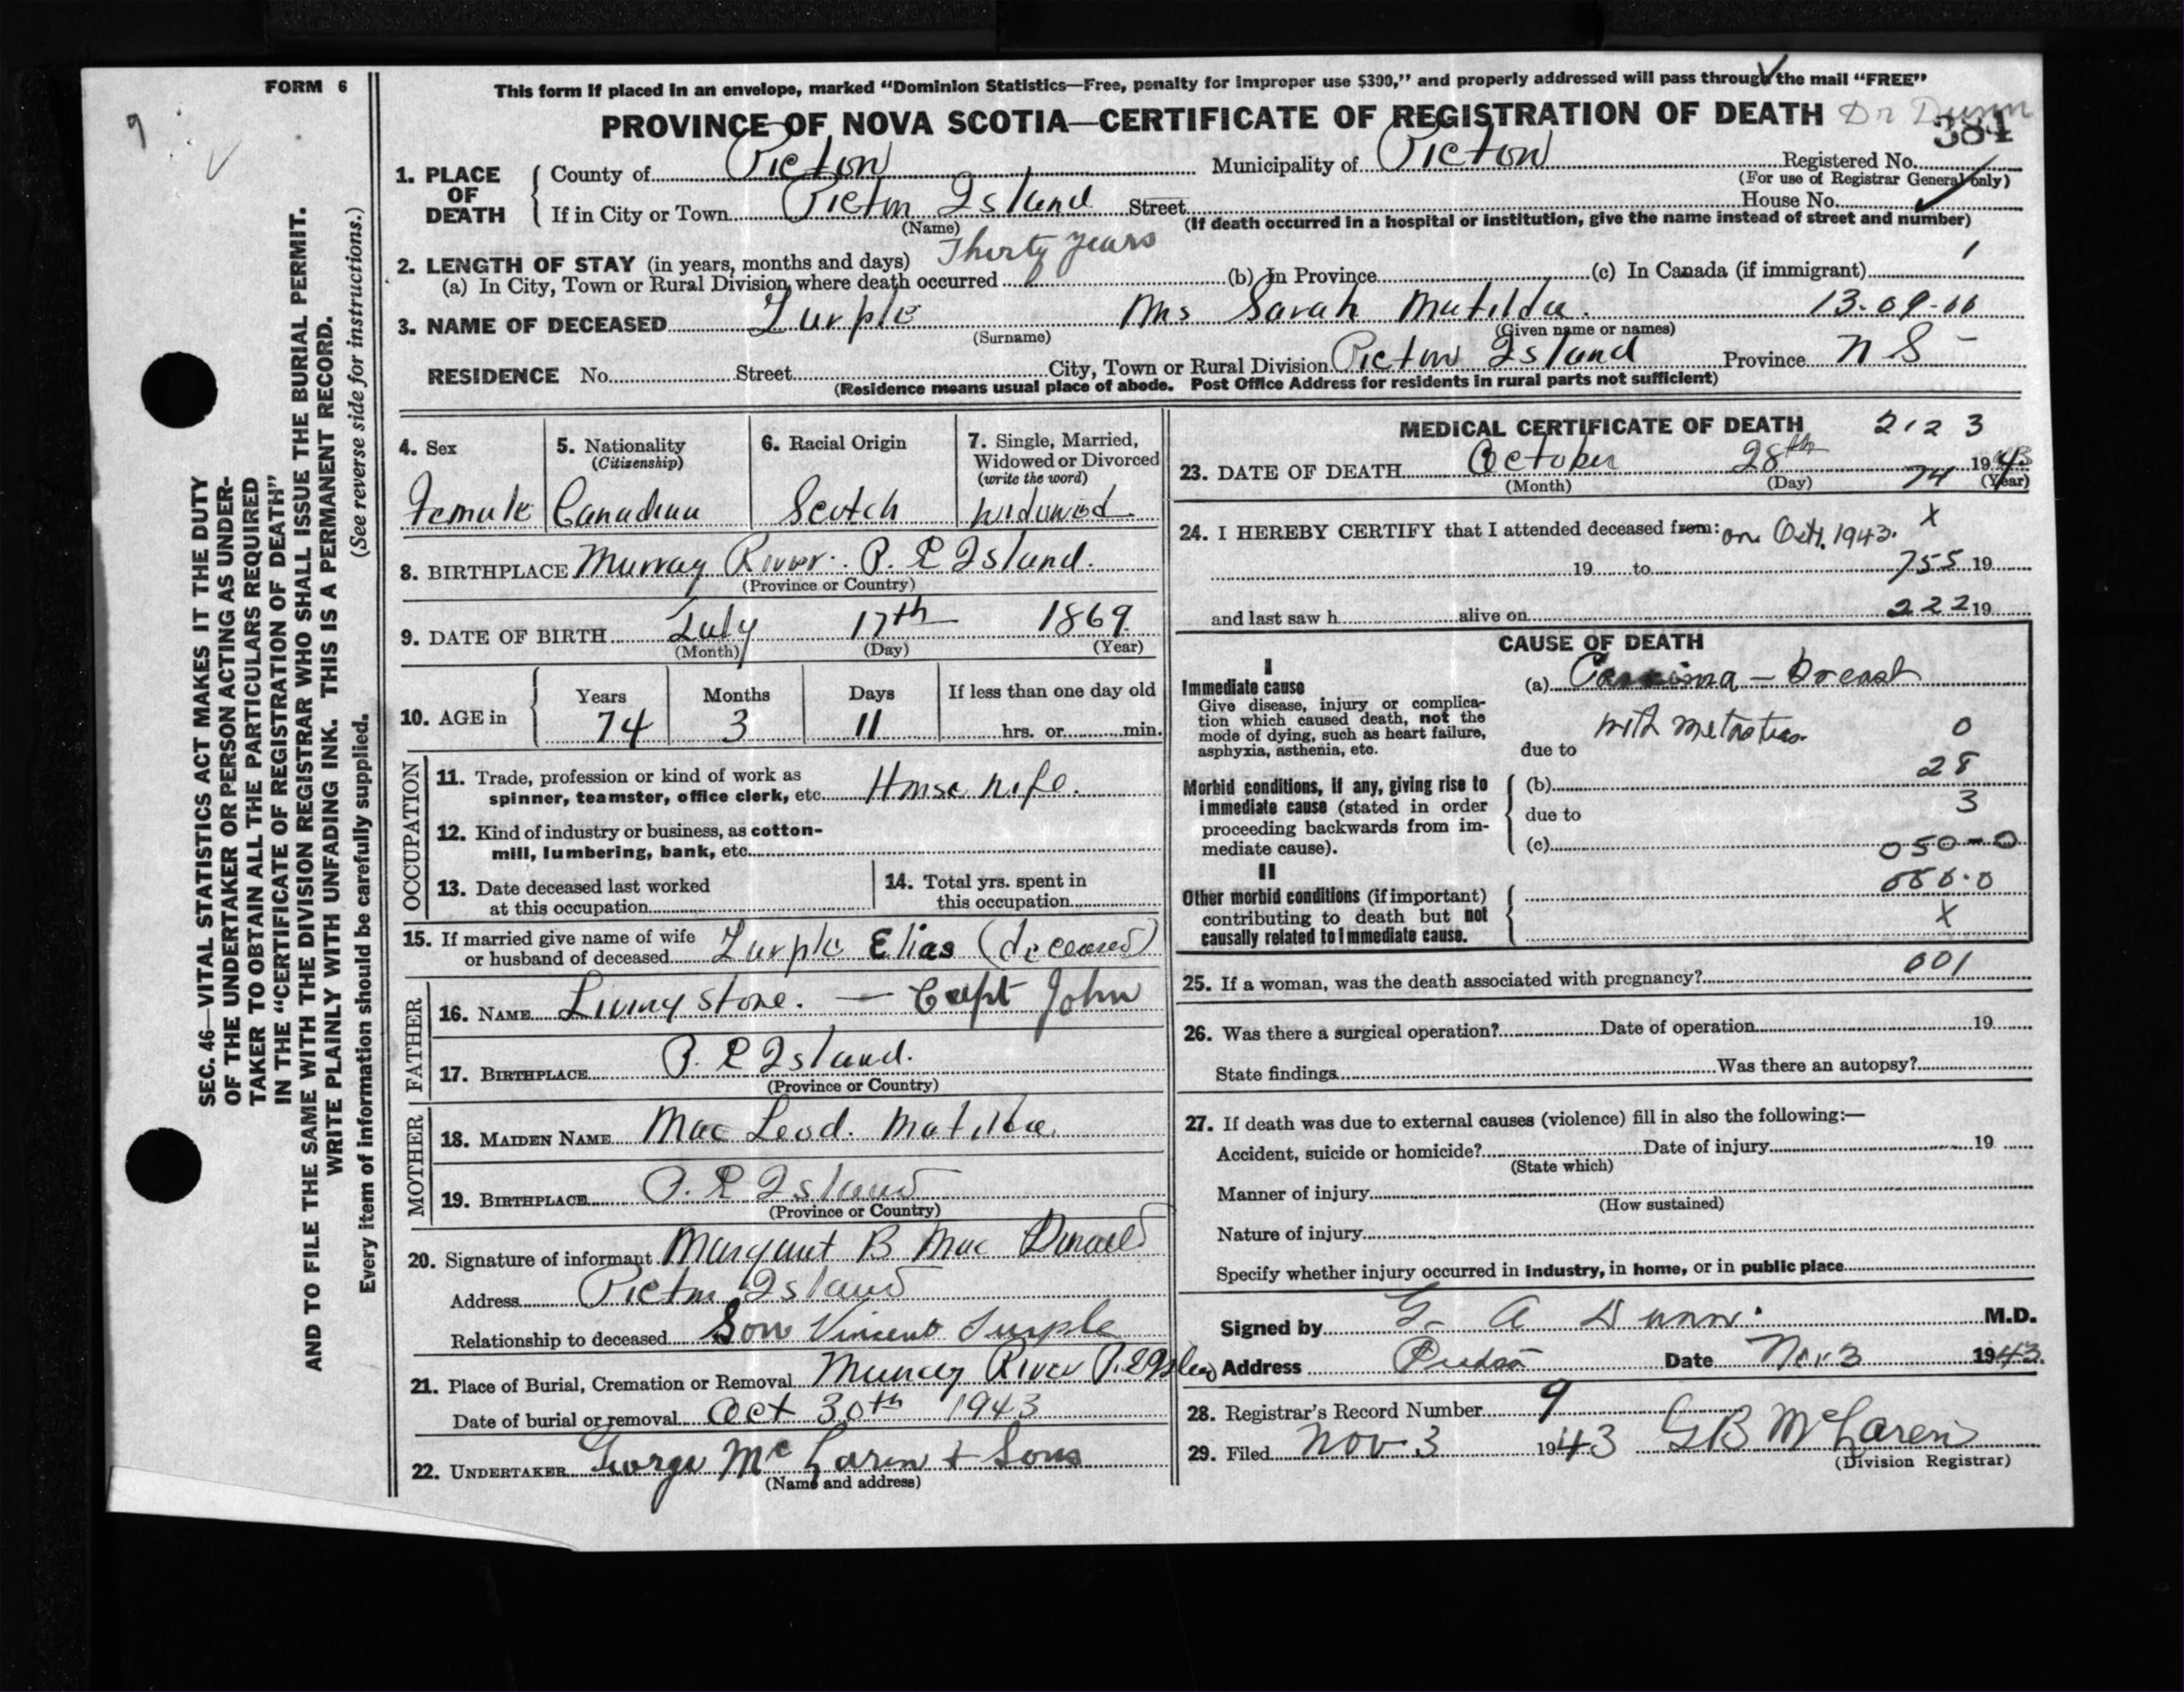 FORM 6
This form if placed in an envelope, marked “Dominion Statistics—Free, penalty for improper use $300,” and properly addressed will pass through the mail “FREE”
PROVINCE OF NOVA SCOTIA—CERTIFICATE OF REGISTRATION OF DEATH Dr Dunn
384
1. PLACE OF DEATH
County of Pictou Municipality of Pictou Registered No.
(For use of Registrar General only)
If in City or Town Pictou Island Street House No.
(Name) (If death occurred in a hospital or institution, give the name instead of street and number)
2. LENGTH OF STAY (in years, months and days) Thirty years
(a) In City, Town or Rural Division where death occurred (b) In Province (c) In Canada (if immigrant)
3. NAME OF DECEASED Surple Mrs Sarah Matilda. 13-09-
(Surname) (Given name or names)
RESIDENCE No. Street City, Town or Rural Division Pictou Island Province N S
(Residence means usual place of abode. Post Office Address for residents in rural parts not sufficient)
4. Sex
Female
5. Nationality
(Citizenship)
Canadian
6. Racial Origin
Scotch
7. Single, Married, Widowed or Divorced
(write the word)
Widowed
8. BIRTHPLACE Murray River. P. E Island.
(Province or Country)
9. DATE OF BIRTH July 17th 1869
(Month) (Day) (Year)
10. AGE in
Years Months Days If less than one day old
74 3 11 hrs. or min.
OCCUPATION
11. Trade, profession or kind of work as
spinner, teamster, office clerk, etc. House wife.
12. Kind of industry or business, as cotton-
mill, lumbering, bank, etc.
13. Date deceased last worked
at this occupation
14. Total yrs. spent in
this occupation
15. If married give name of wife
or husband of deceased Surple Elias (deceased)
FATHER
16. NAME Livingstone. — Capt John
17. BIRTHPLACE P. E Island.
(Province or Country)
MOTHER
18. MAIDEN NAME Mac Leod. Matilda
19. BIRTHPLACE P. E Island
(Province or Country)
20. Signature of informant Margaret B Mac Donald
Address Pictou Island
Relationship to deceased Son Vincent Surple
21. Place of Burial, Cremation or Removal Murray River P. E Island
Date of burial or removal Oct 30th 1943
22. UNDERTAKER George McLaren + Sons
(Name and address)
MEDICAL CERTIFICATE OF DEATH 2123
23. DATE OF DEATH October 28th 1943
(Month) (Day) (Year)
74
24. I HEREBY CERTIFY that I attended deceased from: on Oct. 1943. X
19 to 755 19
and last saw h alive on 222 19
CAUSE OF DEATH
I
Immediate cause
Give disease, injury or complica-
tion which caused death, not the
mode of dying, such as heart failure,
asphyxia, asthenia, etc.
(a) – breast
with
due to 0
Morbid conditions, if any, giving rise to
immediate cause (stated in order
proceeding backwards from im-
mediate cause).
(b) 28
due to 3
(c) 050-0
II
Other morbid conditions (if important)
contributing to death but not
causally related to immediate cause.
X
25. If a woman, was the death associated with pregnancy? 001
26. Was there a surgical operation? Date of operation 19
State findings Was there an autopsy?
27. If death was due to external causes (violence) fill in also the following:—
Accident, suicide or homicide? Date of injury 19
(State which)
Manner of injury
(How sustained)
Nature of injury
Specify whether injury occurred in industry, in home, or in public place
Signed by G. A Dunn. M.D.
Address Pictou Date Nov 3 1943.
28. Registrar's Record Number 9
29. Filed Nov 3 1943 G B McLaren
(Division Registrar)
9
SEC. 46—VITAL STATISTICS ACT MAKES IT THE DUTY
OF THE UNDERTAKER OR PERSON ACTING AS UNDER-
TAKER TO OBTAIN ALL THE PARTICULARS REQUIRED
IN THE “CERTIFICATE OF REGISTRATION OF DEATH”
AND TO FILE THE SAME WITH THE DIVISION REGISTRAR WHO SHALL ISSUE THE BURIAL PERMIT.
WRITE PLAINLY WITH UNFADING INK. THIS IS A PERMANENT RECORD.
Every item of information should be carefully supplied. (See reverse side for instructions.)